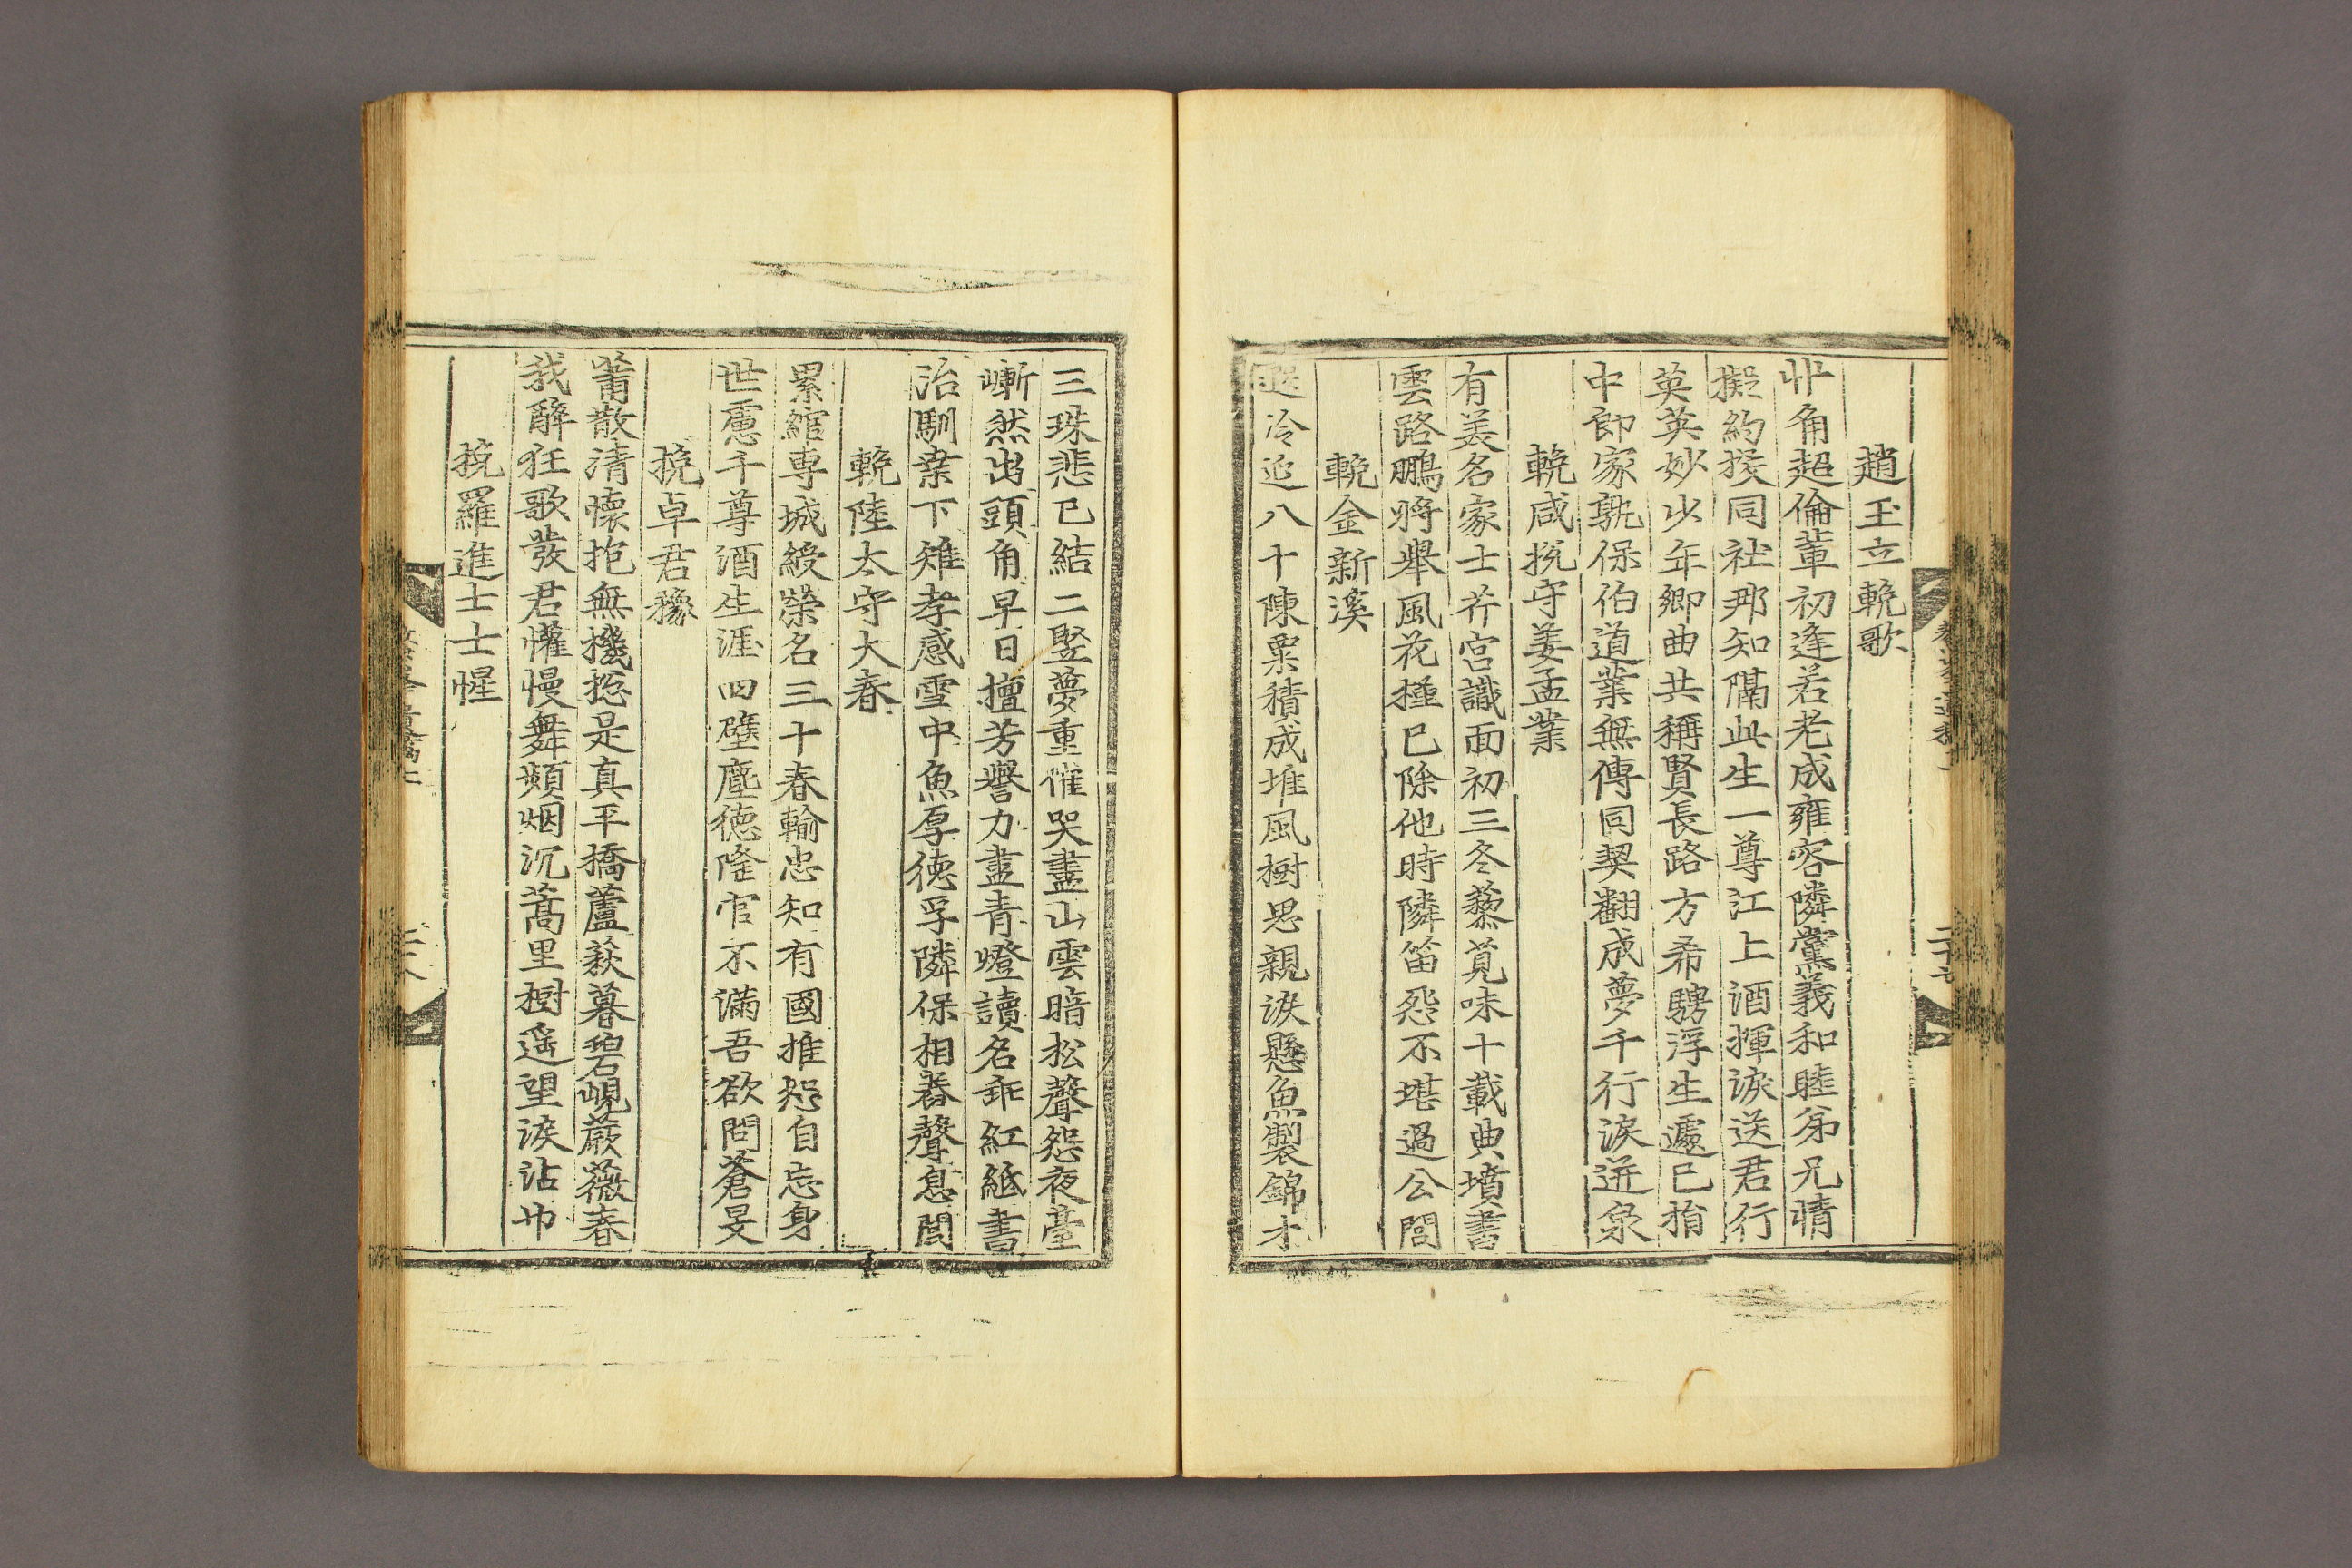 趙玉立輓歌
丱角超倫輩初逢若老成雍容隣黨義和睦弟兄情
擬約投同社那知隔此生一尊江上酒揮淚送君行
英英妙少年鄉曲共稱賢長路方希騁浮生遽已捐
中郞家孰保伯道業無傳同契翻成夢千行淚迸泉
輓咸捝守姜孟業
有美名家士芹宮識面初三冬藜莧味十載典墳書
雲路鵬將舉風花槿已除他時隣笛怨不堪過公閭
輓金新溪
冷追八十陳粟積成堆風樹思親淚懸魚製錦才
三珠悲已結二竪夢重催哭盡山雲暗松聲怨夜臺
嶄然出頭角早日擅芳譽力盡青燈讀名乖紅紙書
治馴桒下雉孝感雪中魚厚德孚隣保相舂聲息閭
輓陸太守大春
累綰專城綬榮名三十春輸忠知有國推恕自忘身
世慮千尊酒生涯四壁塵德隆官不滿吾欲問蒼旻
挽卓君豫
蕭散淸懷抱無機揔是真平橋蘆荻暮碧峴蕨薇春
我醉狂歌發君懽慢舞頻烟沉蒿里樹遥望淚沾巾
挽羅進士士惺